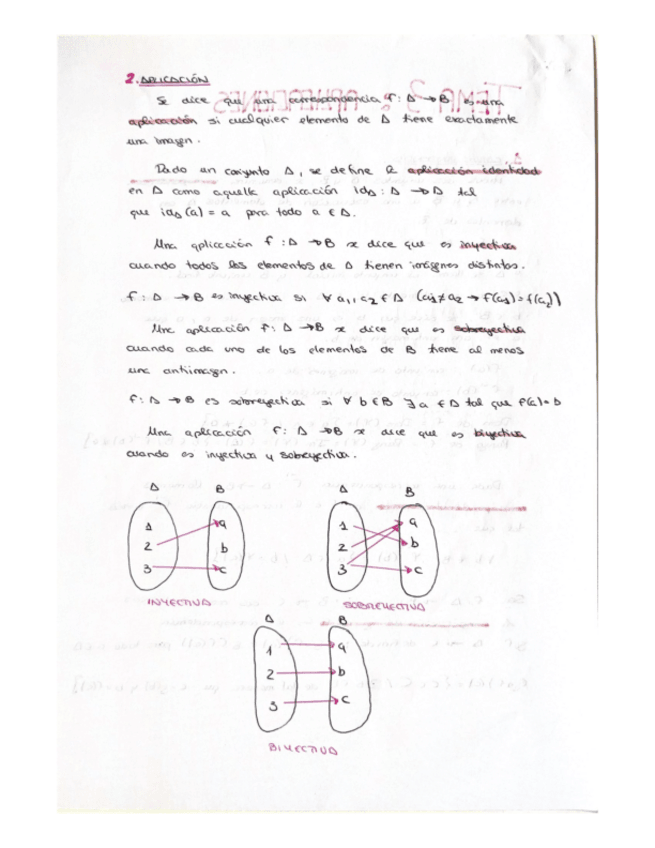 2. APLICACIÓN
Se dice que una correspondencia f: A → B es una
aplicación si cualquier elemento de A tiene exactamente
una imagen.
Dado un conjunto A, se define la aplicación identidad
en A como aquella aplicación Id_A : A → A tal
que id_A (a) = a para todo a ∈ A.
Una aplicación f : A → B se dice que es inyectiva
cuando todos los elementos de A tienen imágenes distintas.
f : A → B es inyectiva si ∀ a₁, a₂ ∈ A (a₁ ≠ a₂ → f(a₁) ≠ f(a₂))
Una aplicación f: A → B se dice que es sobreyectiva
cuando cada uno de los elementos de B tiene al menos
una antiimagen.
f: A → B es sobreyectiva si ∀ b ∈ B ∃ a ∈ A tal que f(a) = b
Una aplicación f: A → B se dice que es biyectiva
cuando es inyectiva y sobreyectiva.
A B
1 a
2 b
3 c
INYECTIVA
A B
1 a
2 b
3 c
SOBREYECTIVA
A B
1 a
2 b
3 c
BIYECTIVA